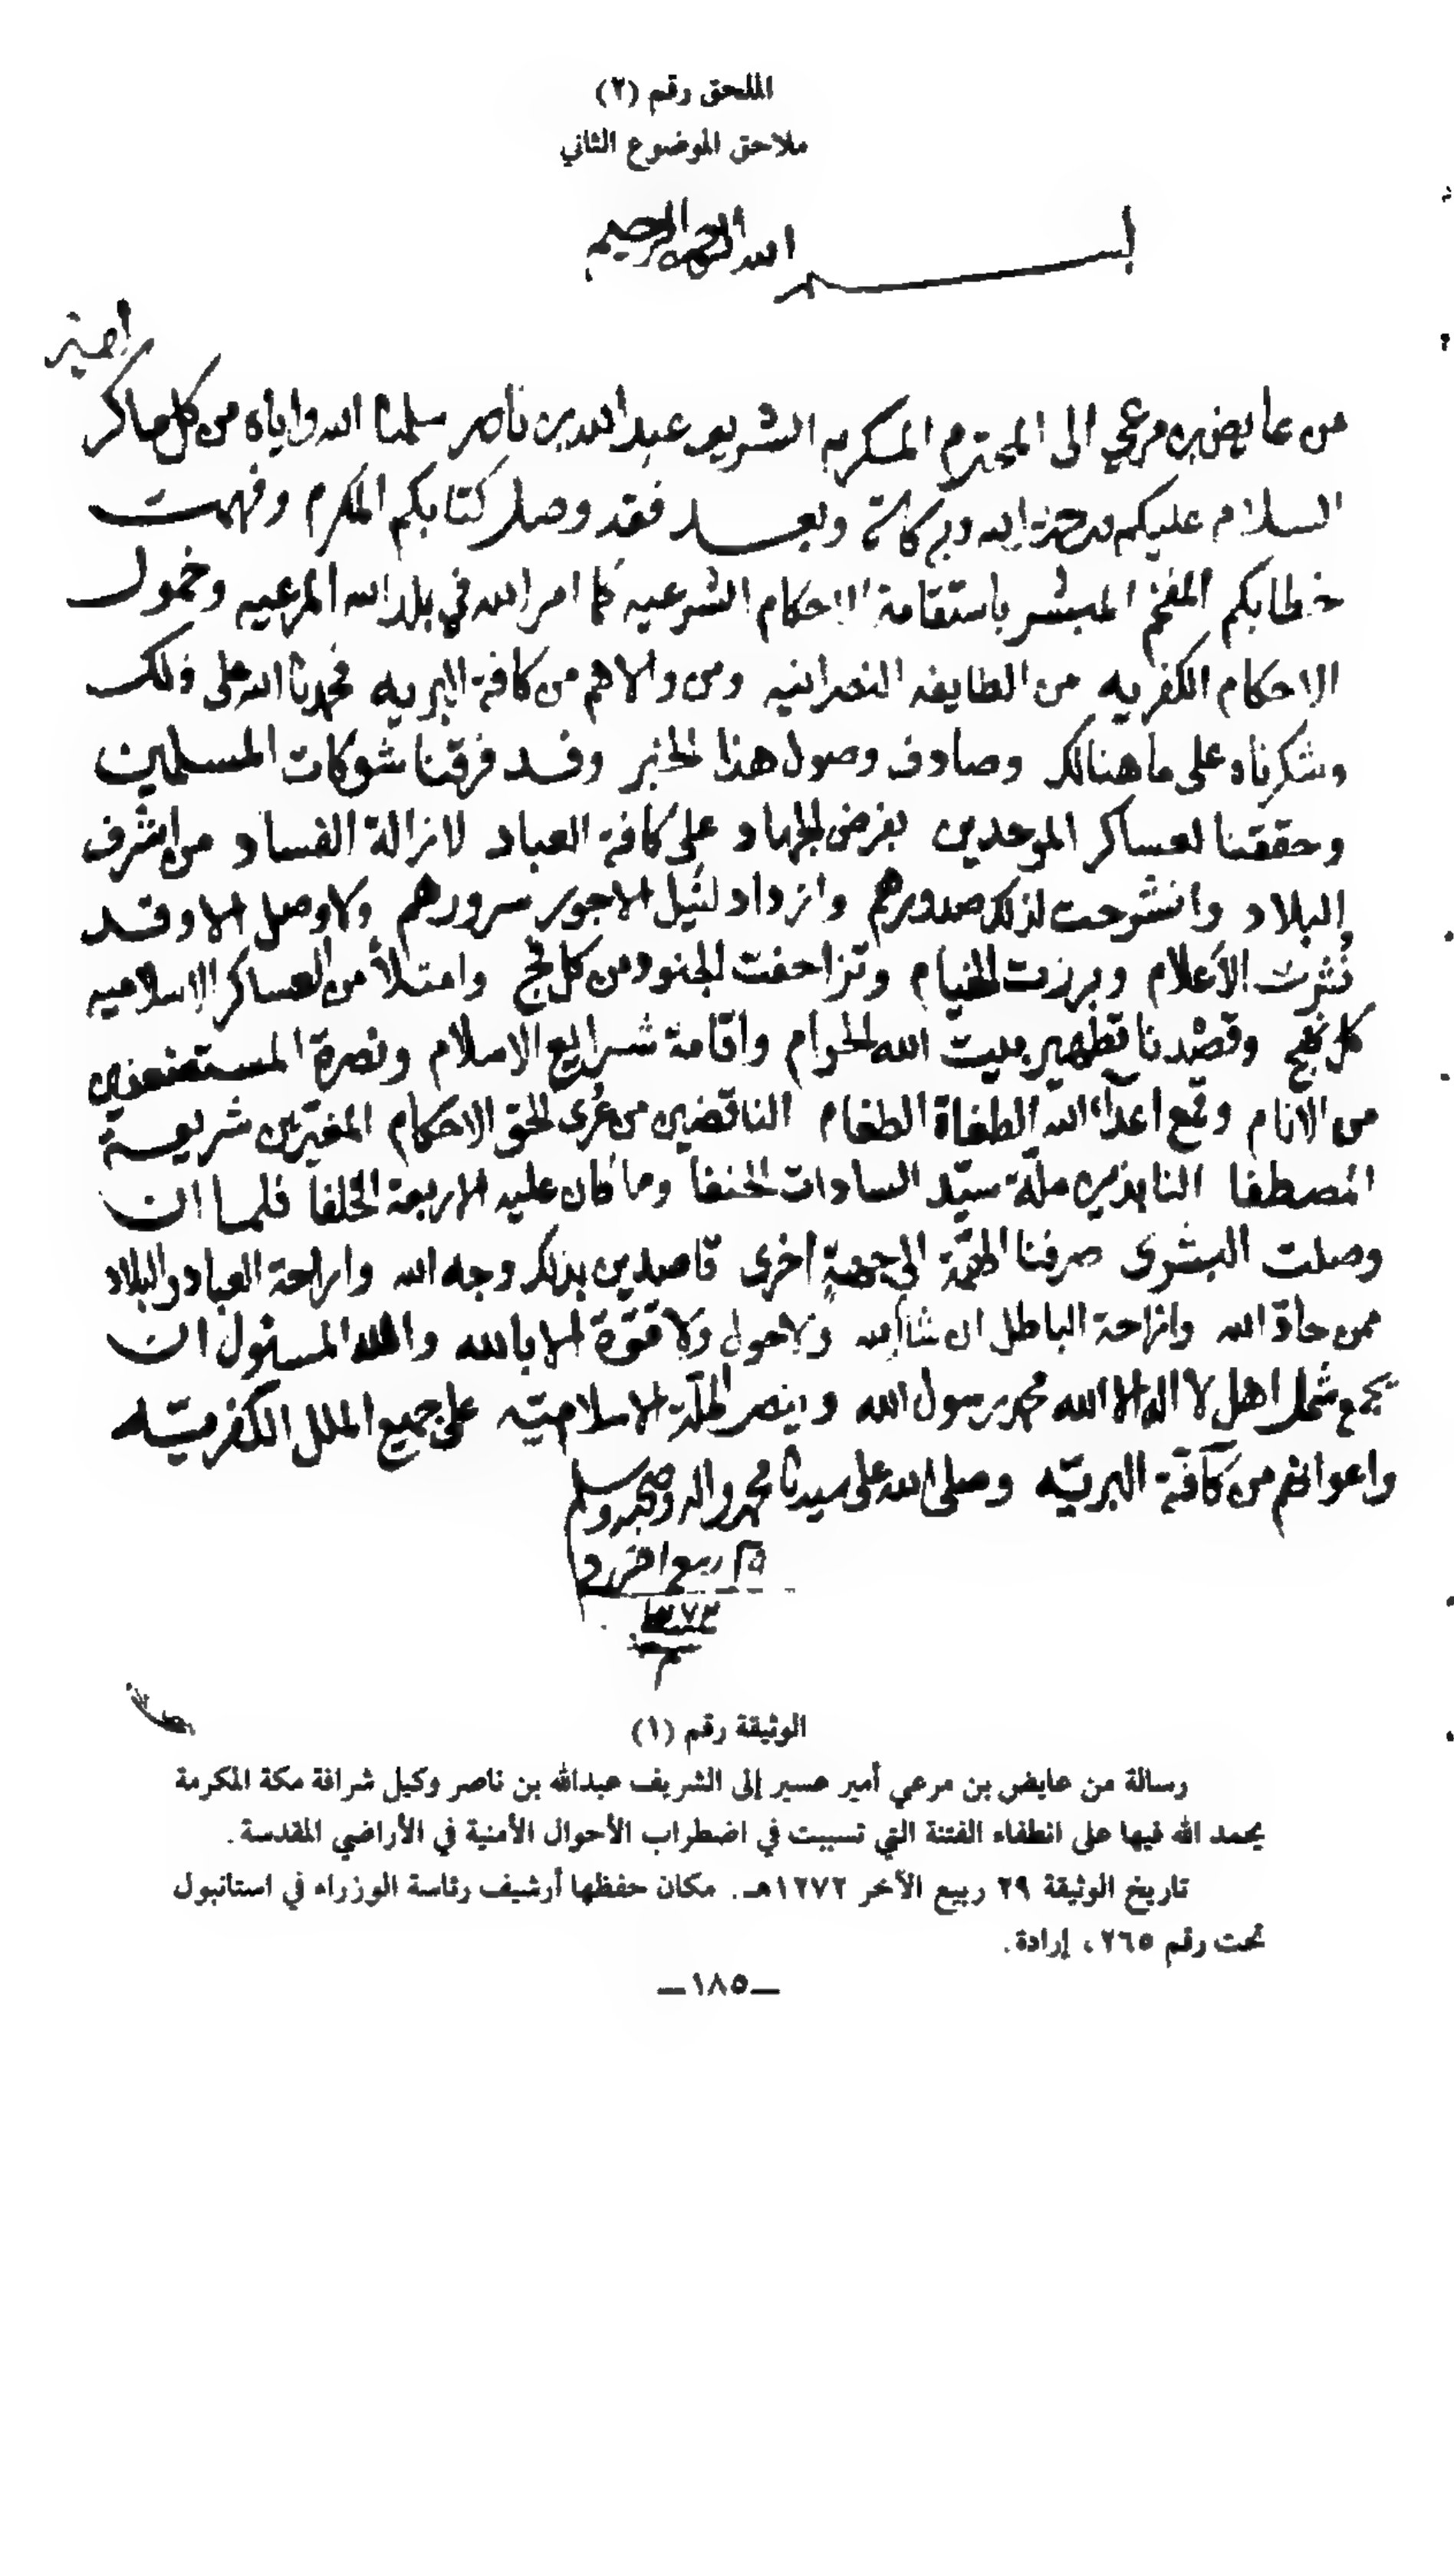 الملحق رقم (٢)
ملاحق الموضوع الثاني
بسم الله الرحمن الرحيم
من عايض بن مرعي الى المحترم المكرم الشريف عبدالله بن ناصر سلمنا الله واياه من كل ماكر
السلام عليكم ورحمة الله وبركاته وبعد فقد وصل كتابكم المكرم وفهمت
خطابكم المفخم المبشر باستقامة الاحكام الشرعيه كما امر الله في بلد الله المرعيه وخمول
الاحكام الكفريه من الطايفه النصرانيه ومن والاهم من كافة البريه فحمدنا الله على ذلك
وشكرناه على ما هنالك وصادف وصول هذا الخبر وقد فرقنا شوكات المسلمين
وحققنا لعساكر الموحدين بفرض الجهاد على كافة العباد لازالة الفساد من اشرف
البلاد وانشرحت لذلك صدورهم وازداد لنيل الاجور سرورهم ولا وصل الا وقد
نُشرت الأعلام وبرزت الخيام وتزاحفت الجنود من كل فج وامتلأ من العساكر الاسلاميه
كل نهج وقصْدنا تطهير بيت الله الحرام واقامة شرايع الاسلام ونصرة المستضعفين
من الانام وقمع اعداء الله الطغاة الطغام الناقضين من عُرى الحق الاحكام المغيّرين شريعة
المصطفا النابذين ملّة سيّد السادات الحنفا وما كان عليه الاربعة الخلفا فلما ان
وصلت البشرى صرفنا الهمّة الى جهةٍ اخرى قاصدين بذلك وجه الله واراحة العباد والبلاد
ممن حادّ الله وازاحة الباطل ان شاالله ولا حول ولا قوّة الا بالله والله المسئول ان
يجمع شمل اهل لا اله الا الله محمد رسول الله وينصر الملّة الاسلاميّه على جميع الملل الكفريّه
واعوانهم من كآفّة البريّه وصلى الله على سيدنا محمد واله وصحبه وسلم
ربيع اخر
الوثيقة رقم (١)
رسالة من عايض بن مرعي أمير عسير إلى الشريف عبدالله بن ناصر وكيل شرافة مكة المكرمة
يحمد الله فيها على انطفاء الفتنة التي تسببت في اضطراب الأحوال الأمنية في الأراضي المقدسة.
تاريخ الوثيقة ٢٩ ربيع الآخر ١٢٧٢هـ. مكان حفظها أرشيف رئاسة الوزراء في استانبول
تحت رقم ٢٦٥، إرادة.
—١٨٥—